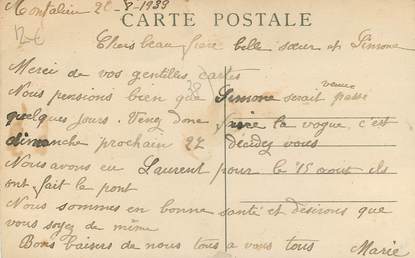 Montalieu 21-8-1933
CARTE POSTALE
12€
Chers beau frere belle sœur et Simone
Merci de vos gentilles cartes
venue
Nous pensions bien que Simone serait passé
quelques jours. Venez donc faire la vogue c'est
dimanche prochain 27 décidez vous
Nous avons eu Laurent pour le 15 aout ils
ont fait le pont
Nous sommes en bonne santé et désirons que
vous soyez de même
Bons baisers de nous tous a vous tous Marie